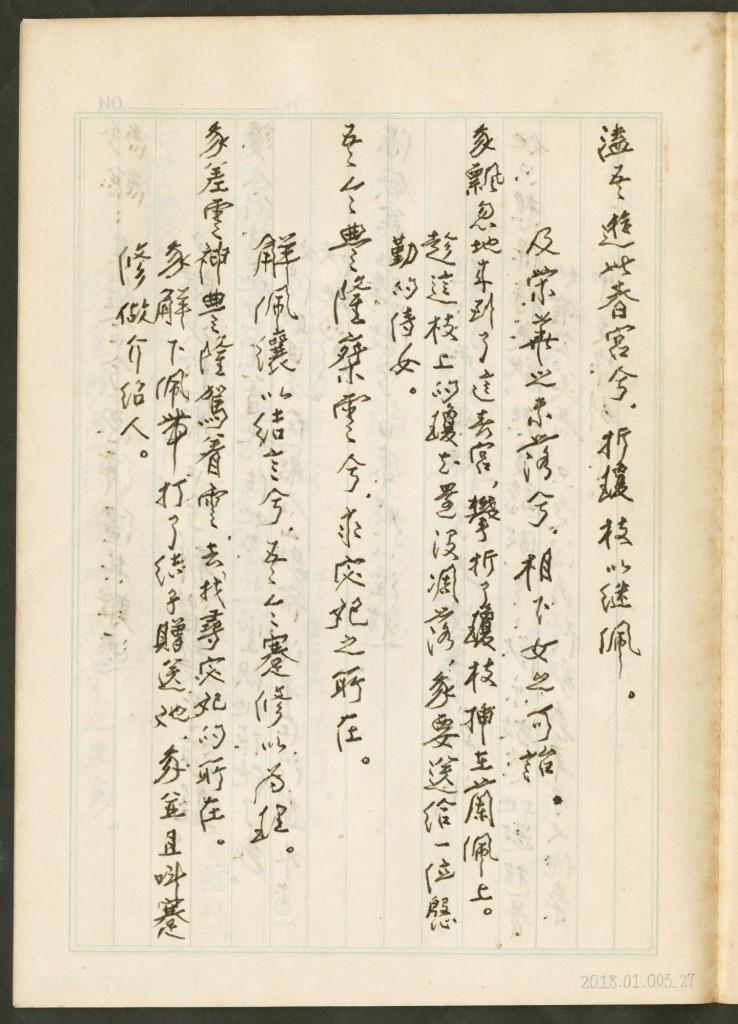 溘吾遊此春宮兮，折瓊枝以继佩。
及荣華之未落兮，相下女之可詒。
我飄忽地来到了這春宮，攀折了瓊枝插在蘭佩上。
趁這枝上的瓊花還沒凋落，我要送给一位慇
勤的侍女。
吾令豊隆椉雲兮，求宓妃之所在。
解佩纕以结言兮，吾令蹇修以为理。
我差雲神豊隆駕着雲，去找尋宓妃的所在。
我解下佩带，打了结子贈送她，我並且叫蹇
修做介绍人。
NO.
2018.01.003_27